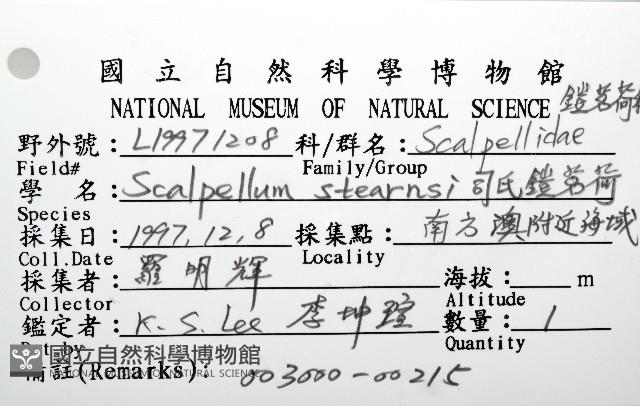 國立自然科學博物館
NATIONAL MUSEUM OF NATURAL SCIENCE 鎧茗荷
野外號：L19971208 科/群名：Scalpellidae
Field# Family/Group
學 名：Scalpellum stearnsi 司氏鎧茗荷
Species
採集日：1997.12.8 採集點：南方澳附近海域
Coll.Date Locality
採集者：羅明輝 海拔： m
Collector Altitude
鑑定者：K.S. Lee 李坤瑄 數量：1
Det.by Quantity
國立自然科學博物館
NATIONAL MUSEUM OF NATURAL SCIENCE
備註(Remarks)：003000-00215